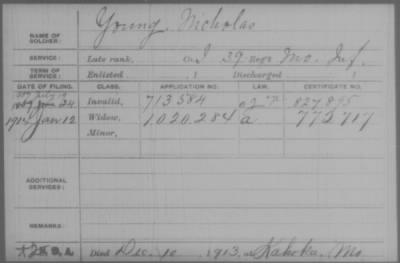 Young, Nicholas
NAME OF SOLDIER:
SERVICE: Late rank, Co. I 39 Reg't Mo. Inf.
TERM OF SERVICE: Enlisted , 1 Discharged , 1
DATE OF FILING. CLASS. APPLICATION NO. LAW. CERTIFICATE NO.
24 Invalid, 713584 827895
Jan 12 Widow, 1,020,284 a 772717
Minor,
ADDITIONAL SERVICES:
REMARKS:
Died Dec. 10, 1913, at Kahoka, Mo